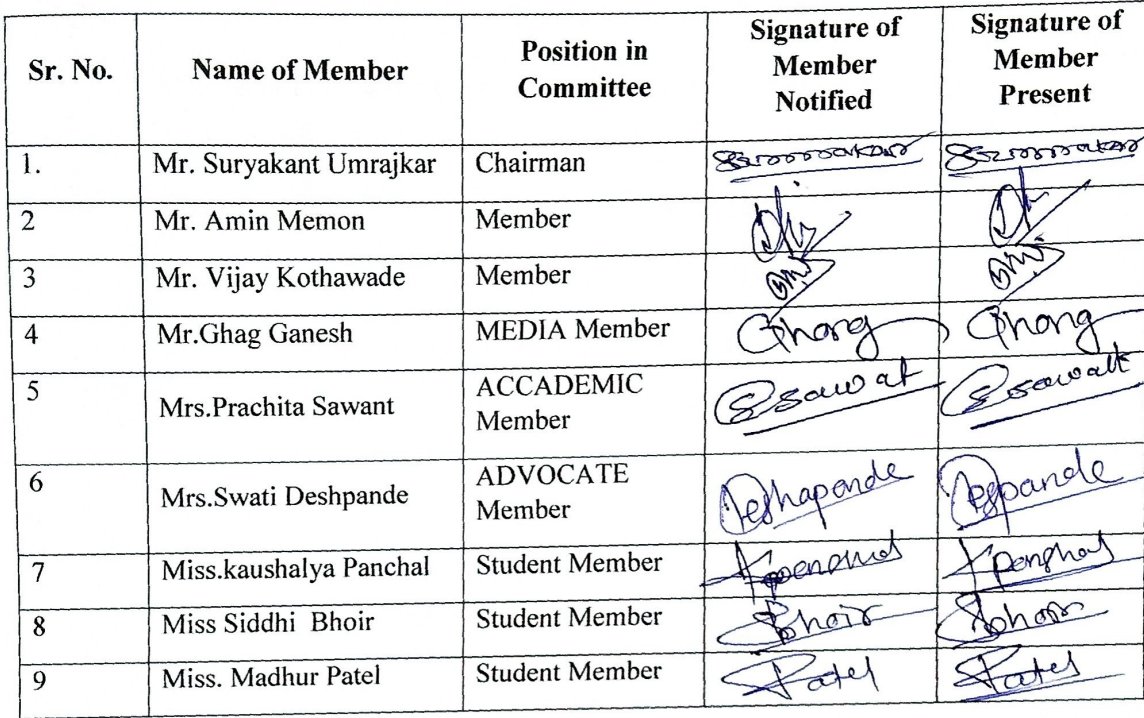 Sr. No. Name of Member Position in Committee Signature of Member Notified Signature of Member Present
1. Mr. Suryakant Umrajkar Chairman
2 Mr. Amin Memon Member
3 Mr. Vijay Kothawade Member
4 Mr.Ghag Ganesh MEDIA Member
5 Mrs.Prachita Sawant ACCADEMIC Member Sawat
6 Mrs.Swati Deshpande ADVOCATE Member Deshapande Despande
7 Miss.kaushalya Panchal Student Member
8 Miss Siddhi Bhoir Student Member Bhoir
9 Miss. Madhur Patel Student Member Patel Patel